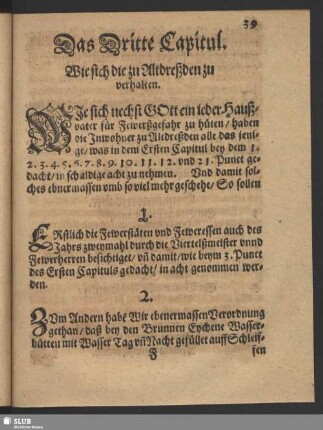 39
Das Dritte Capitul.
Wie sich die zu Altdreßden zu
verhalten.
WIe sich nechst GOtt ein ieder Hauß-
vater für Fewerßgefahr zu hüten / haben
die Inwohner zu Altdreßden alle das jeni-
ge / was in dem Ersten Capitul bey dem 1.
2. 3. 4. 5. 6. 7. 8. 9. 10. 11. 12. und 21. Punct ge-
dacht / in schuldige acht zu nehmen. Und damit sol-
ches ebenermassen umb so viel mehr geschehe / So sollen
1.
ERstlich die Fewerstäten und Feweressen auch des
Jahrs zweymahl durch die Viertelßmeister vnnd
Fewerherren besichtiget / vñ damit / wie beym 3. Punct
des Ersten Capituls gedacht / in acht genommen wer-
den.
2.
ZVm Andern habẽ Wir ebenermassen Verordnung
gethan / daß bey den Brunnen Eychene Wasser-
hütten mit Wasser Tag vñ Nacht gefüllet auff Schleif-
F
fen
SLUB